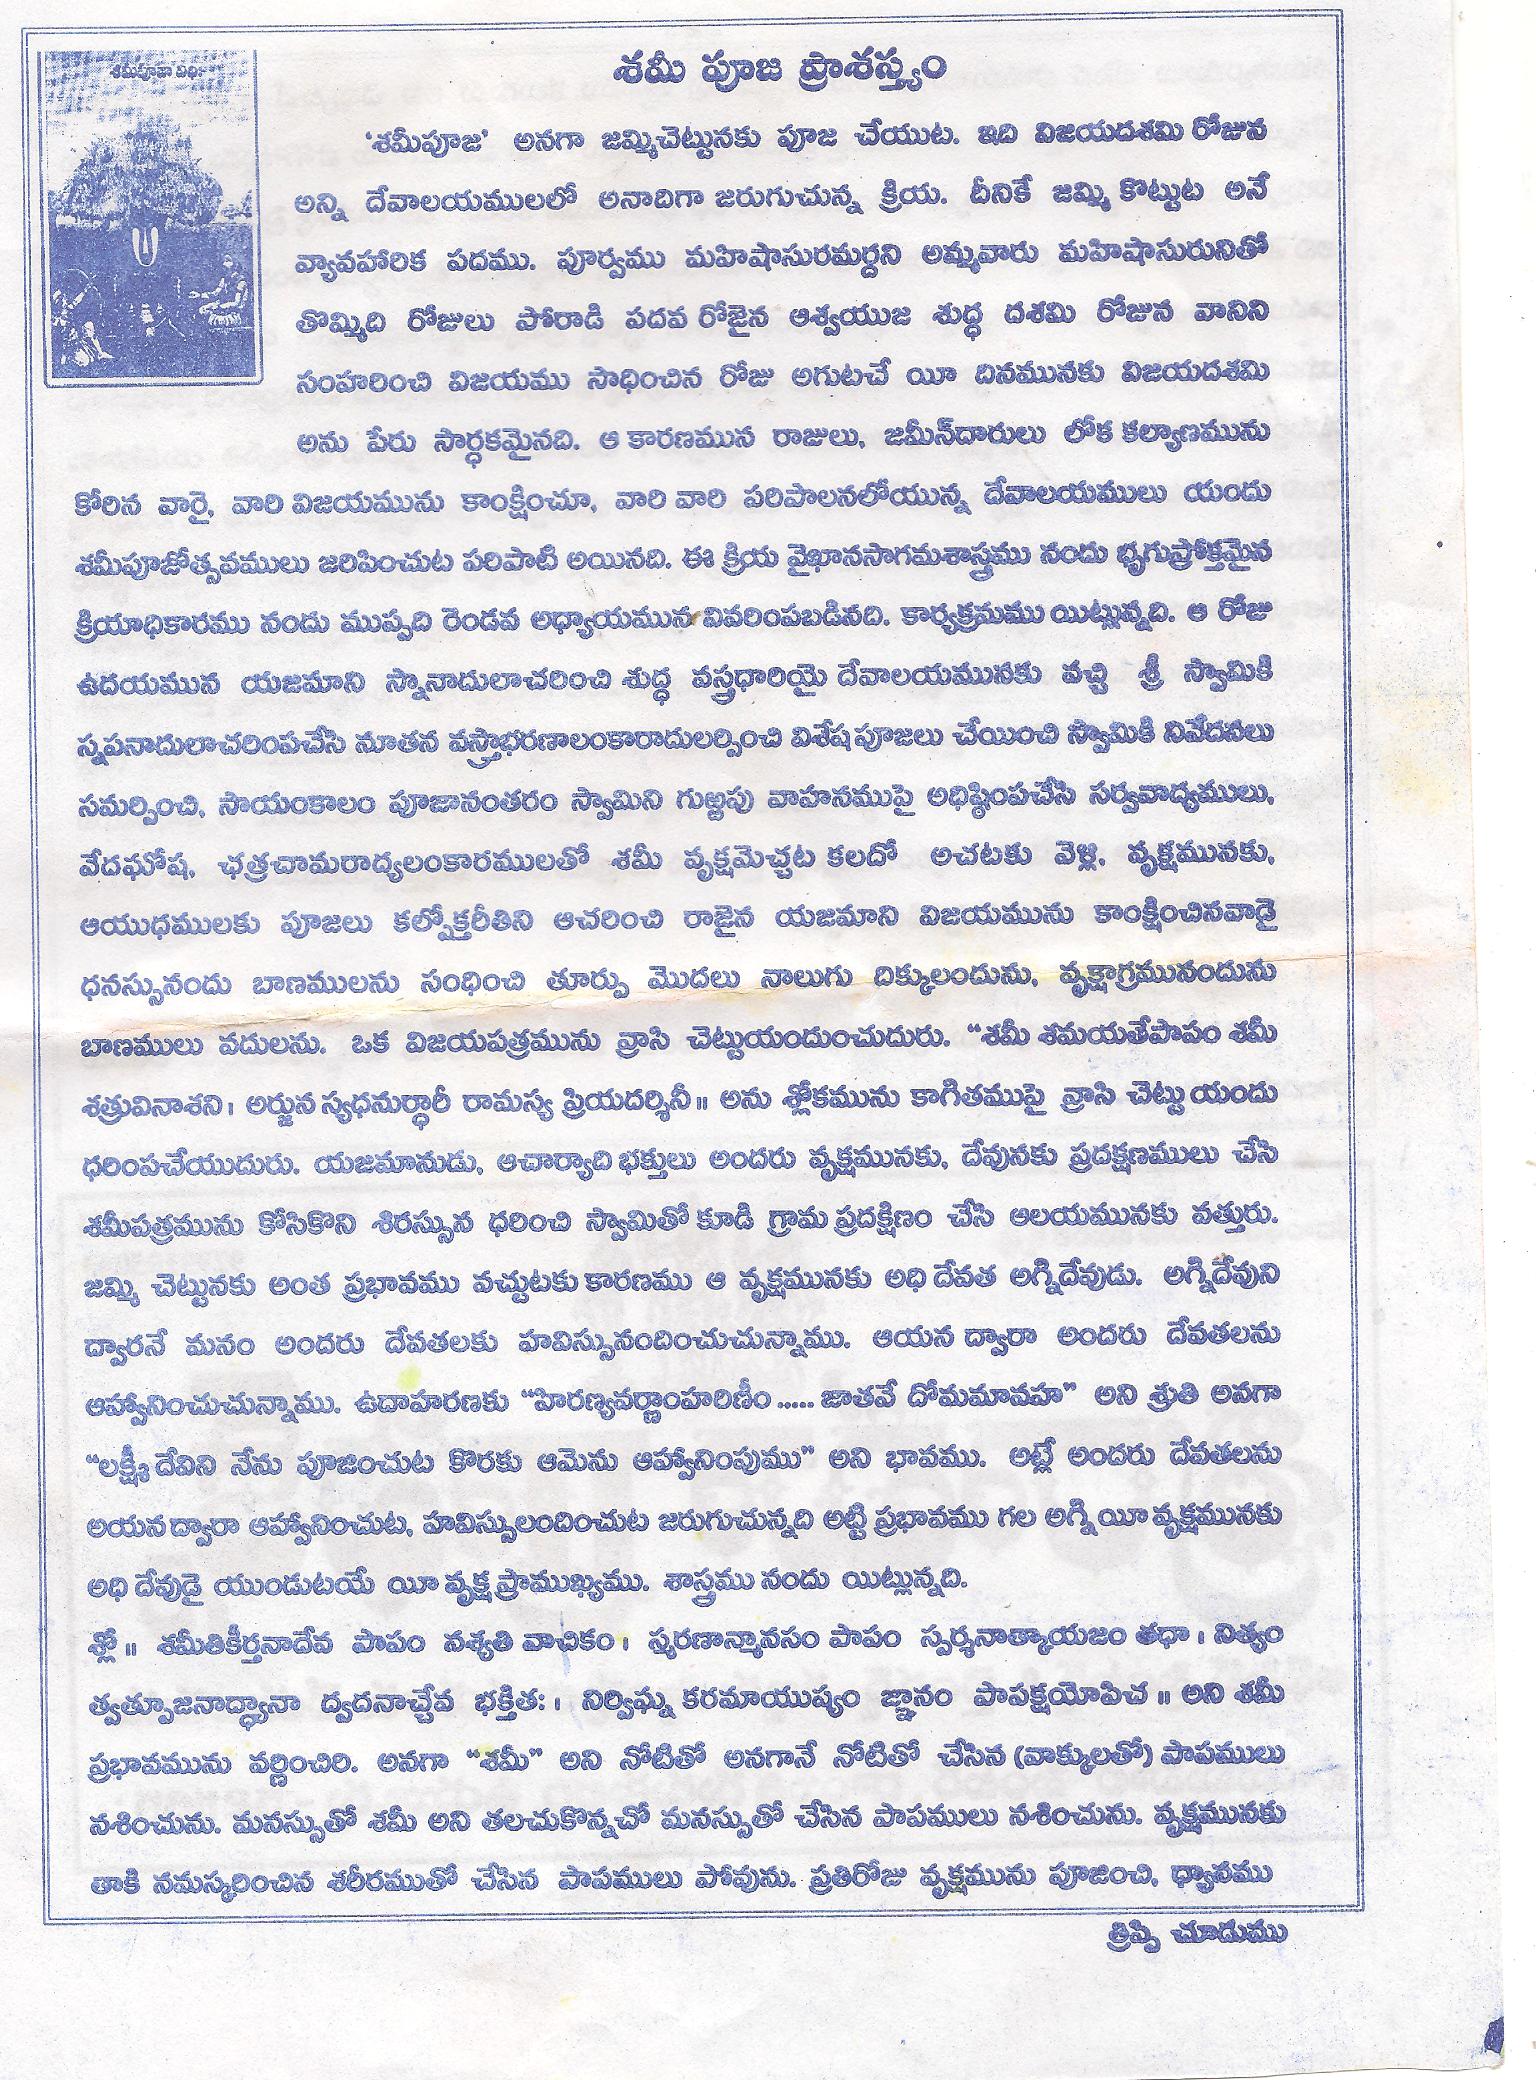 శమీ పూజ ప్రాశస్త్యం
శమీపూజా విధిః
‘శమీపూజ’ అనగా జమ్మిచెట్టునకు పూజ చేయుట. ఇది విజయదశమి రోజున
అన్ని దేవాలయములలో అనాదిగా జరుగుచున్న క్రియ. దీనికే జమ్మి కొట్టుట అనే
వ్యావహారిక పదము. పూర్వము మహిషాసురమర్దని అమ్మవారు మహిషాసురునితో
తొమ్మిది రోజులు పోరాడి పదవ రోజైన ఆశ్వయుజ శుద్ధ దశమి రోజున వానిని
సంహరించి విజయము సాధించిన రోజు అగుటచే యీ దినమునకు విజయదశమి
అను పేరు సార్ధకమైనది. ఆ కారణమున రాజులు, జమీన్‌దారులు లోక కల్యాణమును
కోరిన వారై, వారి విజయమును కాంక్షించూ, వారి వారి పరిపాలనలోయున్న దేవాలయములు యందు
శమీపూజోత్సవములు జరిపించుట పరిపాటి అయినది. ఈ క్రియ వైఖానసాగమశాస్త్రము నందు భృగుప్రోక్తమైన
క్రియాధికారము నందు ముప్పది రెండవ అధ్యాయమున వివరింపబడినది. కార్యక్రమము యిట్లున్నది. ఆ రోజు
ఉదయమున యజమాని స్నానాదులాచరించి శుద్ధ వస్త్రధారియై దేవాలయమునకు వచ్చి శ్రీ స్వామికి
స్నపనాదులాచరింపచేసి నూతన వస్త్రాభరణాలంకారాదులర్పించి విశేష పూజలు చేయించి స్వామికి నివేదనలు
సమర్పించి, సాయంకాలం పూజానంతరం స్వామిని గుఱ్ఱపు వాహనముపై అధిష్ఠింపచేసి సర్వవాద్యములు,
వేదఘోష, ఛత్రచామరాద్యలంకారములతో శమీ వృక్షమెచ్చట కలదో అచటకు వెళ్లి, వృక్షమునకు,
ఆయుధములకు పూజలు కల్పోక్తరీతిని ఆచరించి రాజైన యజమాని విజయమును కాంక్షించినవాడై
ధనస్సునందు బాణములను సంధించి తూర్పు మొదలు నాలుగు దిక్కులందును, వృక్షాగ్రమునందును
బాణములు వదులను. ఒక విజయపత్రమును వ్రాసి చెట్టుయందుంచుదురు. “శమీ శమయతేపాపం శమీ
శత్రువినాశని। అర్జున స్యధనుర్ధారీ రామస్య ప్రియదర్శినీ॥ అను శ్లోకమును కాగితముపై వ్రాసి చెట్టు యందు
ధరింపచేయుదురు. యజమానుడు, ఆచార్యాది భక్తులు అందరు వృక్షమునకు, దేవునకు ప్రదక్షణములు చేసి
శమీపత్రమును కోసికొని శిరస్సున ధరించి స్వామితో కూడి గ్రామ ప్రదక్షిణం చేసి ఆలయమునకు వత్తురు.
జమ్మి చెట్టునకు అంత ప్రభావము వచ్చుటకు కారణము ఆ వృక్షమునకు అధి దేవత అగ్నిదేవుడు. అగ్నిదేవుని
ద్వారనే మనం అందరు దేవతలకు హవిస్సునందించుచున్నాము. ఆయన ద్వారా అందరు దేవతలను
ఆహ్వానించుచున్నాము. ఉదాహరణకు “హిరణ్యవర్ణాంహరిణీం ..... జాతవే దోమమావహ” అని శ్రుతి అనగా
“లక్ష్మీ దేవిని నేను పూజించుట కొరకు ఆమెను ఆహ్వానింపుము” అని భావము. అట్లే అందరు దేవతలను
అయన ద్వారా ఆహ్వానించుట, హవిస్సులందించుట జరుగుచున్నది అట్టి ప్రభావము గల అగ్ని యీ వృక్షమునకు
అధి దేవుడై యుండుటయే యీ వృక్ష ప్రాముఖ్యము. శాస్త్రము నందు యిట్లున్నది.
శ్లో॥ శమీతికీర్తనాదేవ పాపం నశ్యతి వాచికం। స్మరణాన్మానసం పాపం స్పర్శనాత్కాయజం తధా। నిత్యం
త్వత్పూజనాద్ధ్యానా ద్వదనాచ్చేవ భక్తితః। నిర్విఘ్న కరమాయుష్యం జ్ఞానం పాపక్షయోపిచ॥ అని శమీ
ప్రభావమును వర్ణించిరి. అనగా “శమీ” అని నోటితో అనగానే నోటితో చేసిన (వాక్కులతో) పాపములు
నశించును. మనస్సుతో శమీ అని తలచుకొన్నచో మనస్సుతో చేసిన పాపములు నశించును. వృక్షమునకు
తాకి నమస్కరించిన శరీరముతో చేసిన పాపములు పోవును. ప్రతిరోజు వృక్షమును పూజించి, ధ్యానము
త్రిప్పి చూడుము